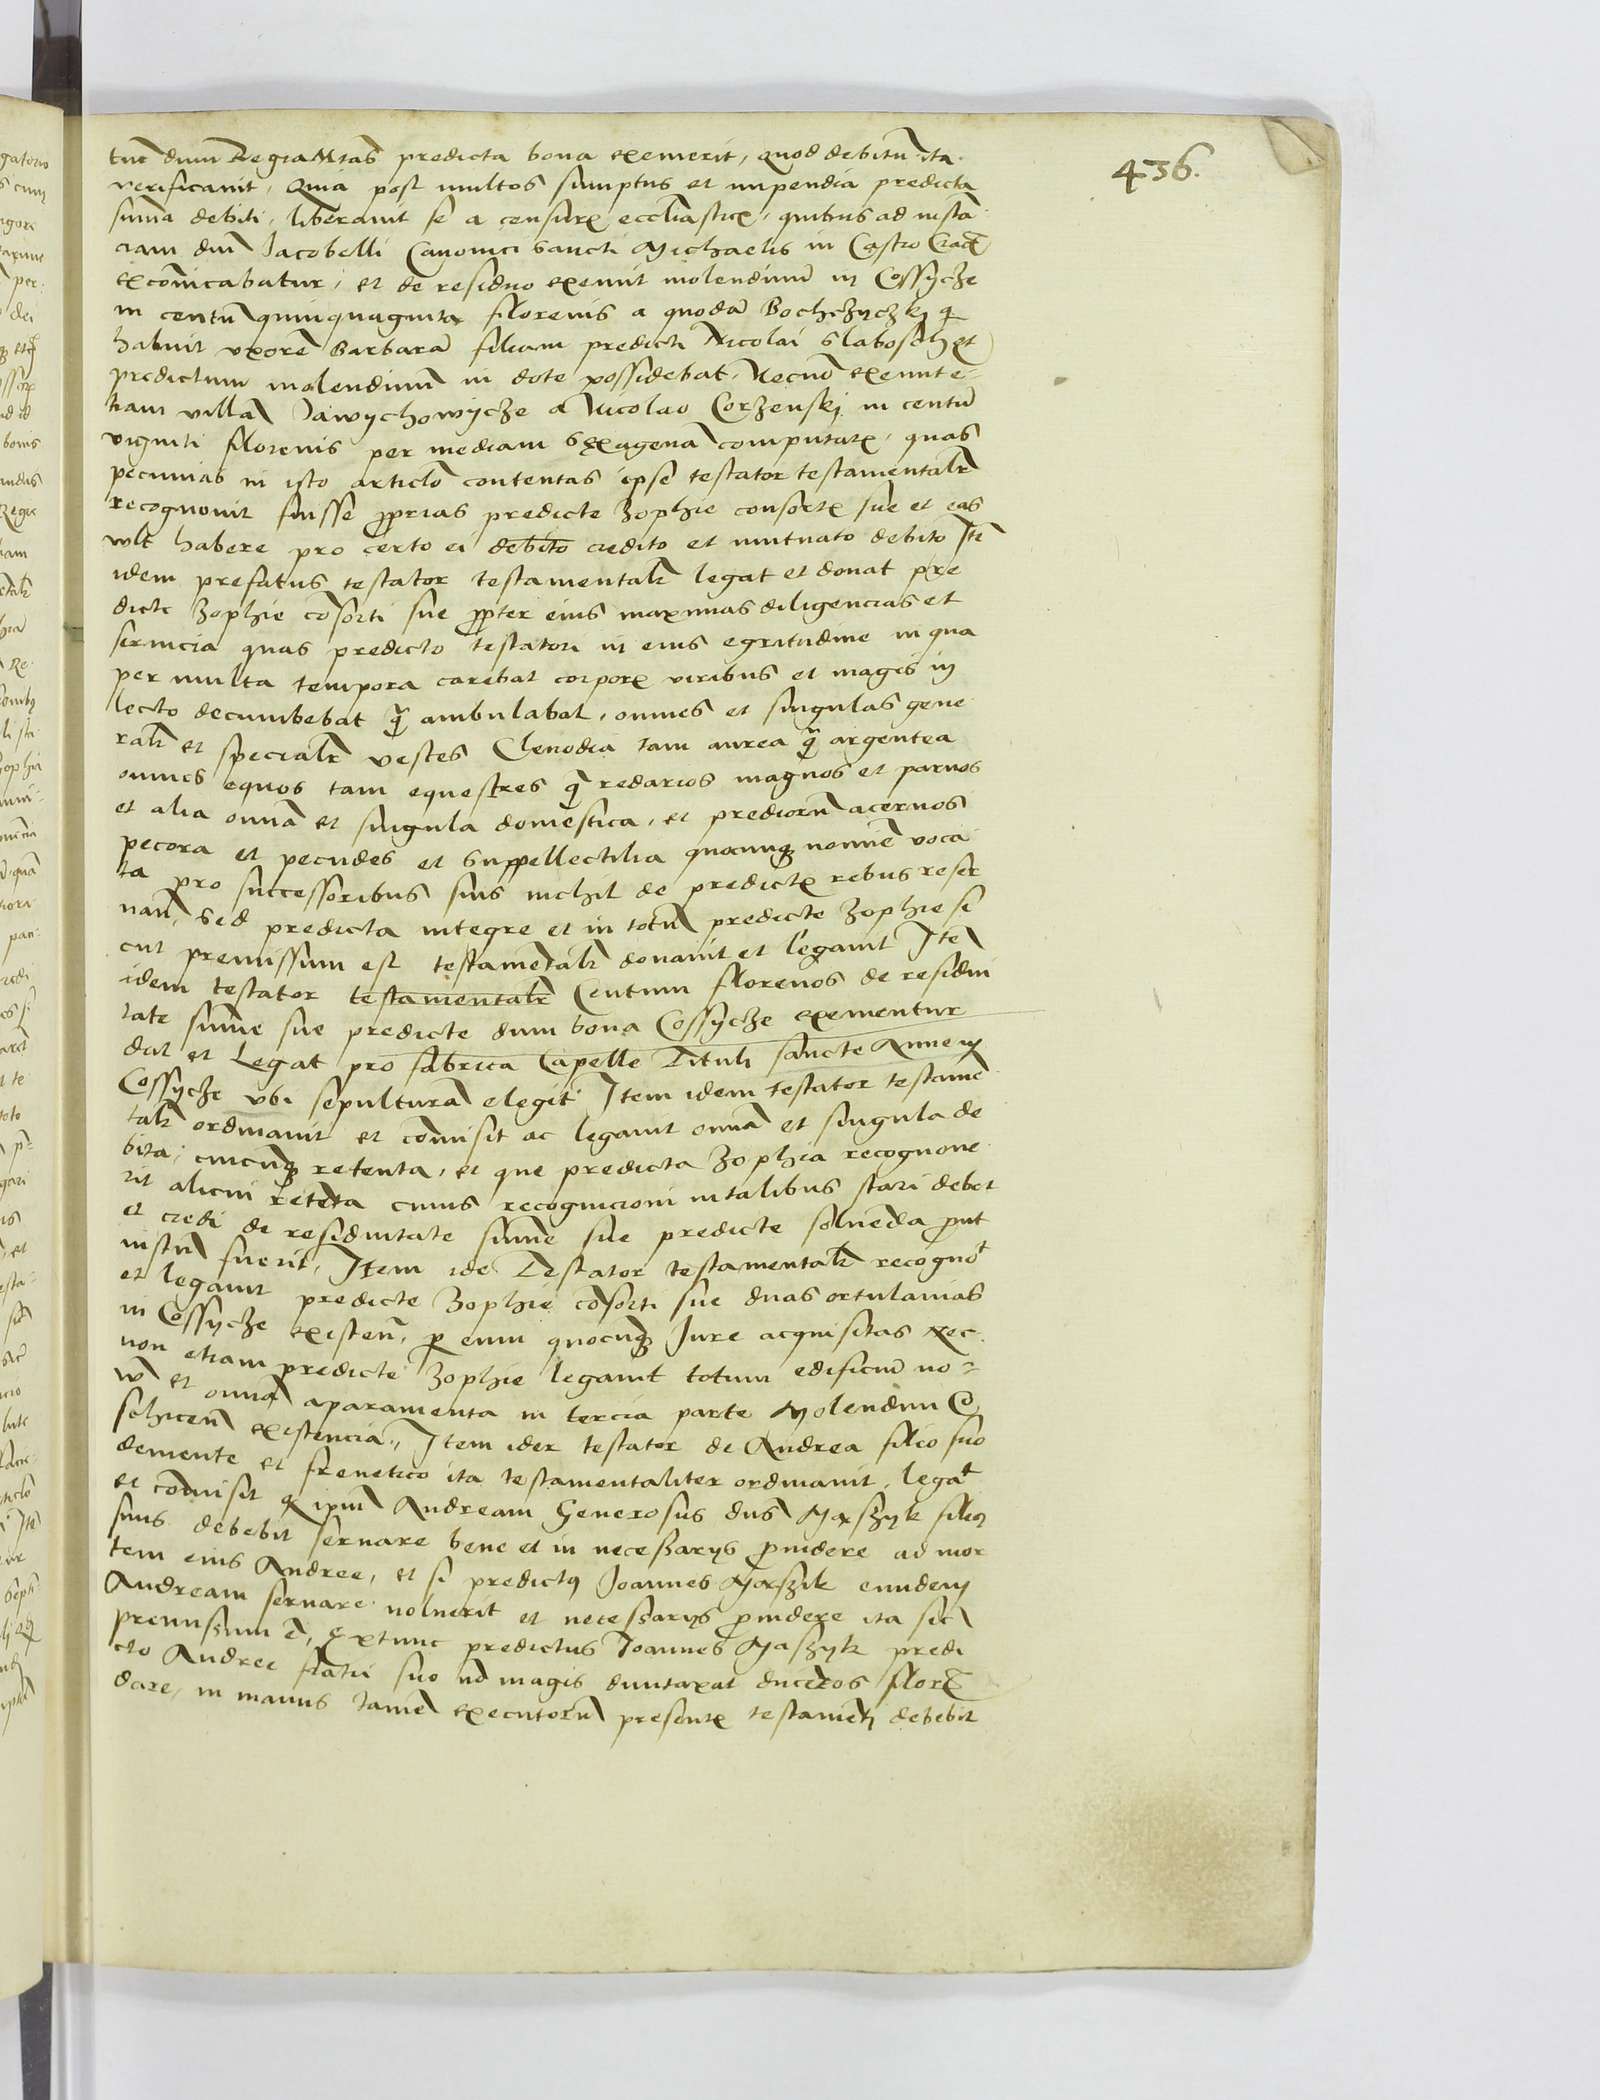 436.
tunc dum Regia Mtas predicta bona exemerit, quod debitu ita
verificavit, Quia post multos sumptus et impendia predicta
suma debiti, liberavit se a censurx eccliasticx, quibus ad insta
ciam dni Jacobelli Canonici sancti Michaelis in Castro Crac
excomicabatur, et de residuo exemit molendinu in Cossycze
in centu quinquaginta florenis a quoda Bochczyczkj q
habuit uxore Barbara filiam predicti Nicolai Slabosch et
predictum molendinu in dote possidebat. Necno exemit e-
tiam villa Jawychowycze a Nicolao Corzenskj in centu
viginti florenis per mediam sexagena computatx, quas
pecunias in isto articlo contentas ipse testator testamentalr
recognovit fuisse pprias predicte Zophie consortx sue et eas
vlt habere pro certo ei debito credito et mutuato debito Ite
idem prefatus testator testamentalr legat et donat pre
dicte Zophie cosorti sue ppter eius maximas diligencias et
servicia quas predicto testatori in eius egritudine in qua
per multa tempora carebat corporx viribus et magis in
lecto decumbebat q ambulabat, omnes et singulas gene
ralr et specialr vestes Clenodia tam aurea q argentea
omnes equos tam equestres q redarios magnos et parvos
et alia omia et singula domestica, et predioru acervos
pecora et pecudes et suppellectilia quocunq nomie voca
ta pro successoribus suis nichil de predictx rebus reser
van, Sed predicta integre et in totu predicte Zophie si
cut premissum est testametalr donavit et legavit Ite
idem testator testamentalr Centum florenos de residui
tate sume sue predicte dum bona Cossycze exementur
dat et Legat pro fabrica Capelle Tituli sancte Anne in
Cossycze ubi sepultura elegit Item idem testator testame
talr ordinavit et comisit ac legavit omia et singula de
bita, cuicuq retenta, et que predicta Zophia recognove
rit alicui reteta cuius recognicioni in talibus stari debet
et credi de residuitate sume sue predicte solvenda put
iustu fuerit, Item ide Testator testamentalr recognot
et legavit predicte Zophie cosorti sue duas ortulanias
in Cossycze existen, p eum quocuq Jure acquisitas Nec
non etiam predicte Zophie legavit totum edificiu no-
vu et omia aparamenta in tercia parte Molendini Co
schicen existencia, Item idem testator de Andrea filio suo
demente et frenetico ita testamentaliter ordinavit, legat
et comisit q ipm Andream Generosus dns Maszyk filius
suus debebit servare bene et in necessarys pvidere ad mor
tem eius Andree, et si predictus Joannes Maszik eundem
Andream servare noluerit et necessarys pvidere ita sic
premissum e, extunc predictus Joannes Maszyk predi
cto Andree fratri suo no magis duntaxat ducetos flore
dare, in manus tame executoru presentx testameti debebit